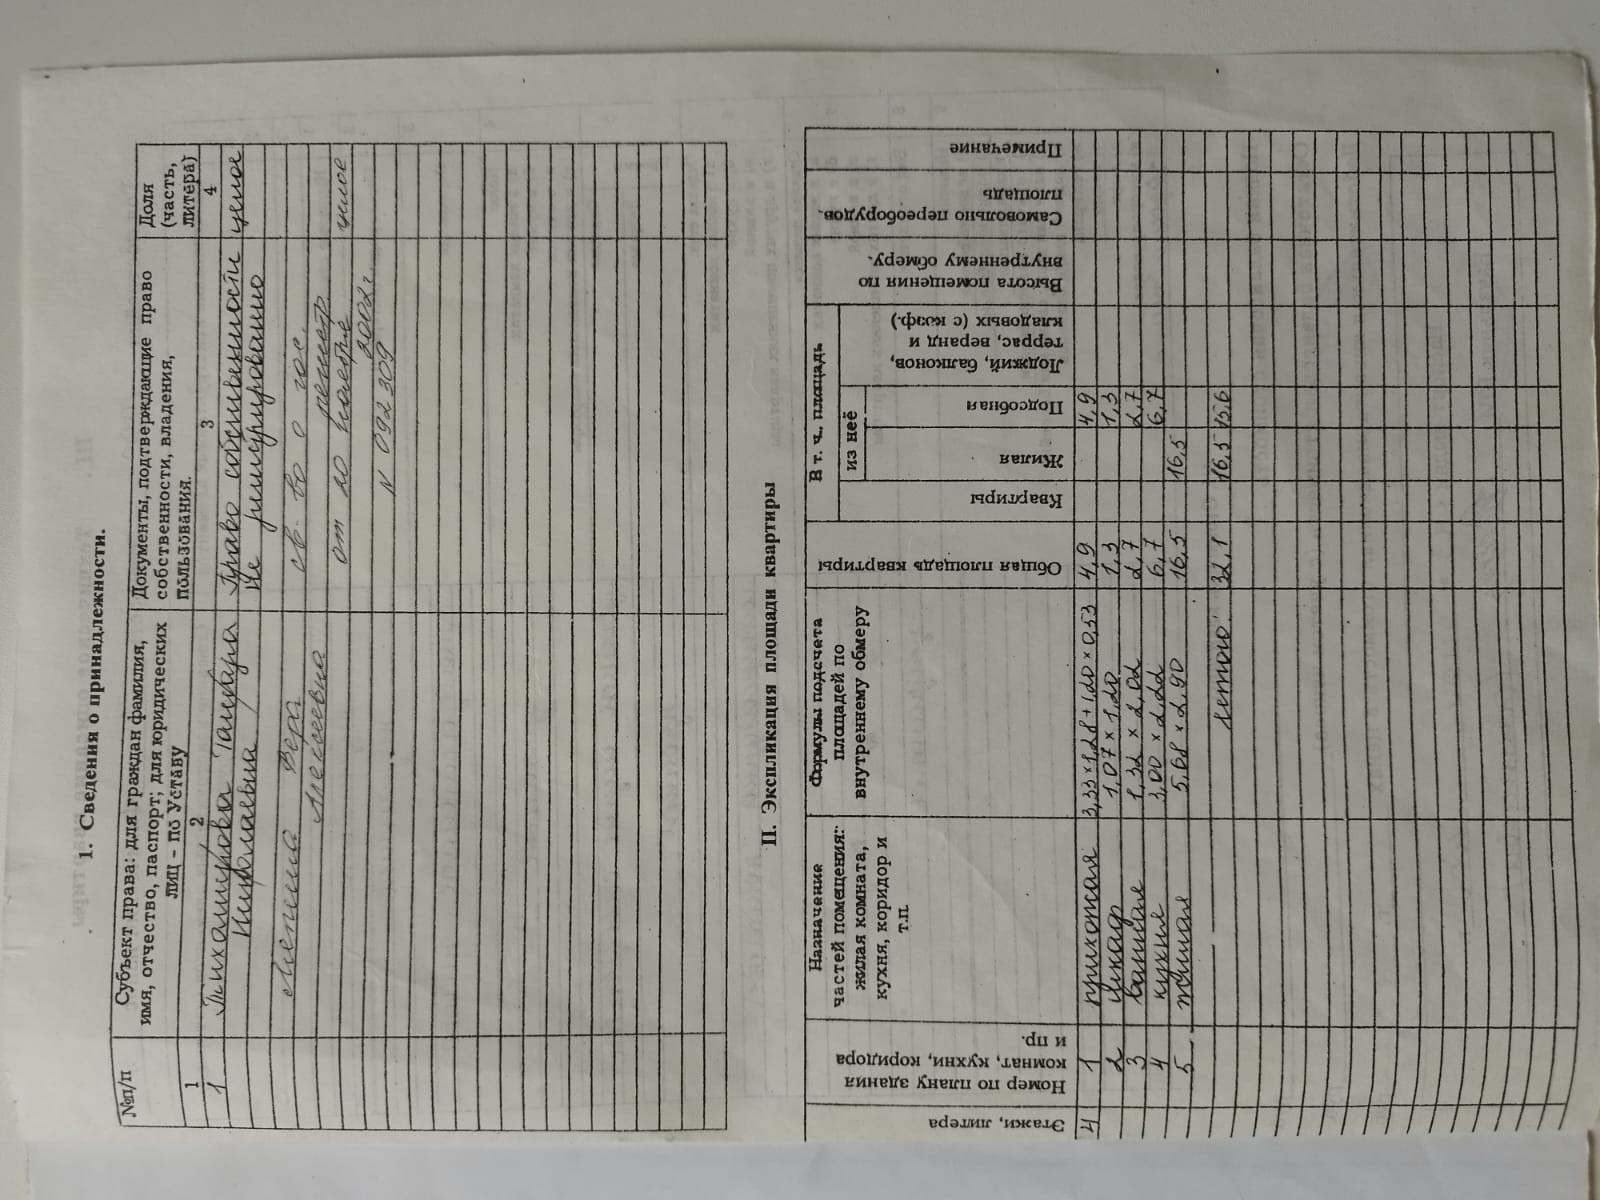 1. Сведения о принадлежности.
№п/п
Субъект права: для граждан фамилия,
имя, отчество, паспорт; для юридических
лиц – по Уставу
Документы, подтверждающие право
собственности, владения,
пользования.
Доля
(часть,
литера)
1 2 3 4
1 Тихамирова Тамара Право собственности целое
Николаевна Не регистрировано
Вера св-во о гос.
Алексеевна регистр
от 20 ноября целое
2002г
N 092309
II. Экспликация площади квартиры
Этажи, литера
Номер по плану здания
комнат, кухни, коридора
и пр.
Назначение
частей помещения:
жилая комната,
кухня, коридор и
т.п.
Формулы подсчета
площадей по
внутреннему обмеру
Общая площадь квартиры
В т. ч., площадь
Квартиры
из неё
Жилая
Подсобная
Лоджий, балконов,
террас, веранд и
кладовых (с коэф.)
Высота помещения по
внутреннему обмеру.
Самовольно переоборудов.
площадь
Примечание
4 1 прихожая 3,33×1,28+1,20×0,53 4,9 4,9
2 шкаф 1,07×1,20 1,3 1,3
3 ванная 1,32×2,02 2,7 2,7
4 кухня 3,00×2,22 6,7 6,7
5 жилая 5,68×2,90 16,5 16,5
итого: 32,1 16,5 15,6